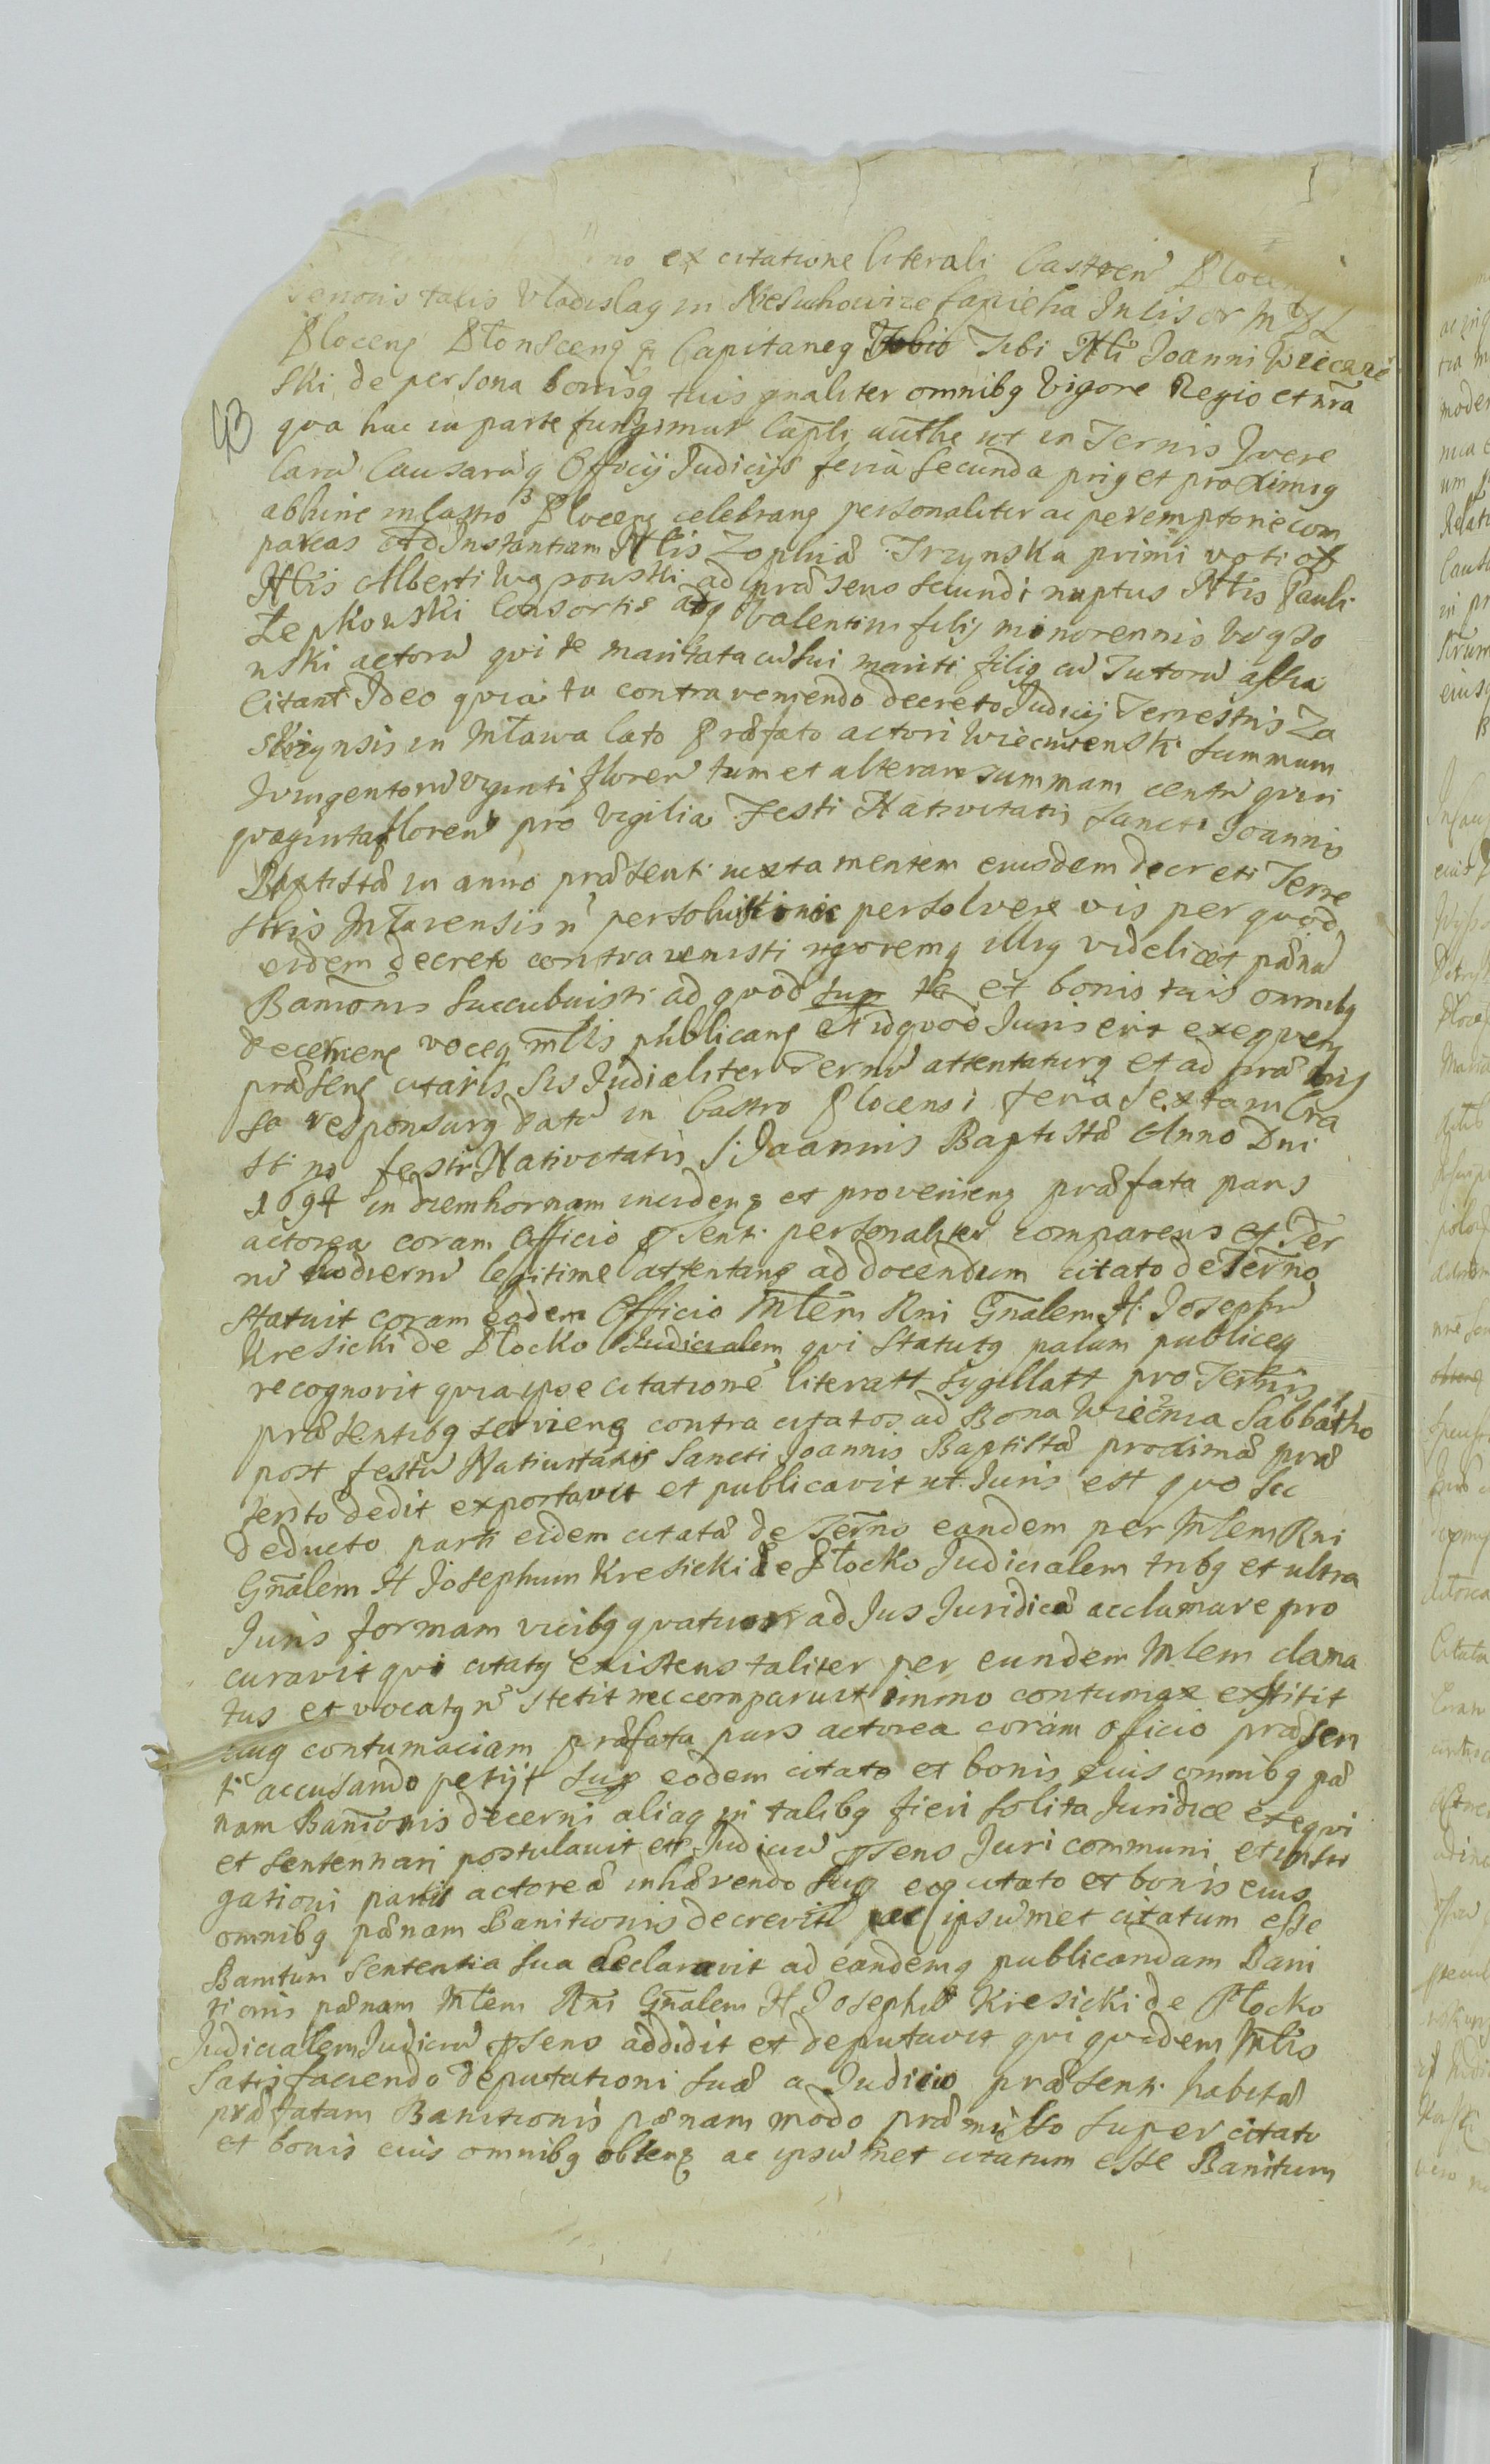 ex citatione literali Castren
tenoris talis Vladislaq in Niesuchowice Sapieha Inlis
Plocenq Plonscenq q Capitaneq Tibi Nli Joanni Wieczwie
ski de persona bonisq tuis gnaliter omnibq Vigore Regio et nra
qva hac in parte fungimur Capli authe ut in Ternis Qvere
larū Causarūq Officij Judicijs feria Secunda priq et proximiq
abhinc in Castro Plocenq celebranq personaliter ac peremptorie com
pareas Ad Instantiam Nlis Zophiæ Trzynska primi voti
Nlis Alberti Wąsowski ad præsens secundi nuptus Nlis Pauli
Łępkowski Consortis atq Valentini filij minorennis Wąso
wski actorū qvi te maritata cū sui mariti filiq cū Tutorū assia
Citant Ideo qvia tu contraveniendo decreto Judicij Terrestris Za
skrzynsis in Mława lato Præfato actori Wieczwienski summam
qvingentorū viginti floren tum et alteram summam centū qvin
qvaginta floren pro Vigilia Festi Nativitatis Sancti Joannis
Baptistæ in anno præsenti iuxta mentem eiusdem decreti Terre
stris Mlavensis n persoluisti nec persolvere vis per qvod
eidem decreto contravenisti rigoremq illiq videlicet pænā
Banionis succubuisti ad qvod sup te et bonis tuis omnibq
decernenq voceq Mlis publicanq et id qvod Juris erit exeqvenq
præsenq citaris Sis Judicialiter Ternū attentaturq et ad præmis
sa responsurq Datū in Castro Plocensi feria Sexta in Cra
stino festi Nativitatis S. Joannis Baptistæ Anno Dni
1694 in diem hornam incidenq et provenienq præfata pars
actorea coram Officio psenti personaliter comparens et Ter
nū hodiernū legitime attentanq ad docendum citato de Terno
statuit coram eodem Officio Mlem Rni Gnalem H. Josephū
Kresicki de Plocko Judicialem qvi Statutq palam publiceq
recognovit qvia ipse citatione literatt sygillatt pro Ternis
præsentibq servienq contra citatos ad Bona Wiecznia Sabbatho
post festū Nativitatis Sancti Joannis Baptistæ proximæ præ
terito dedit exportavit et publicavit ut Juris est qvo sic
deducto parti eidem citatæ de Terno eandem per Mlem Rni
Gnalem H Josephum Kresicki de Plocko Judicialem tribq et ultra
Juris formam vicibq qvatuor ad Jus Juridicæ acclamare pro
curavit qvi citatq existens taliter per eundem Mlem clama
tus et vocatq n stetit nec comparuit immo contumax extitit
cuiq contumaciam præfata pars actorea coram oficio præsen
ti accusando petijt sup eodem citato et bonis eius omnibq pæ
nam Banionis decerni aliaq in talibq fieri solita Juridice exeqvi
et sententiari postulavit et Judiciū psens Juri communi et insti
gationi partis actoreæ inhærendo sup eoq citato et bonis eius
omnibq pænam Banitionis decrevit ac ipsūmet citatum esse
Banitum Sententia sua declaravit ad eandemq publicandam Bani
tionis pænam Mlem Rni Gnalem H Josephū Kresicki de Plocko
Judicialem Judiciū psens addidit et deputavit qvi qvidem Mlis
satisfaciendo deputationi suæ a Judicio præsenti habitæ
præfatam Banitionis pænam modo præmisso super citato
et bonis eius omnibq obtenq ac ipsūmet citatum esse Banitum